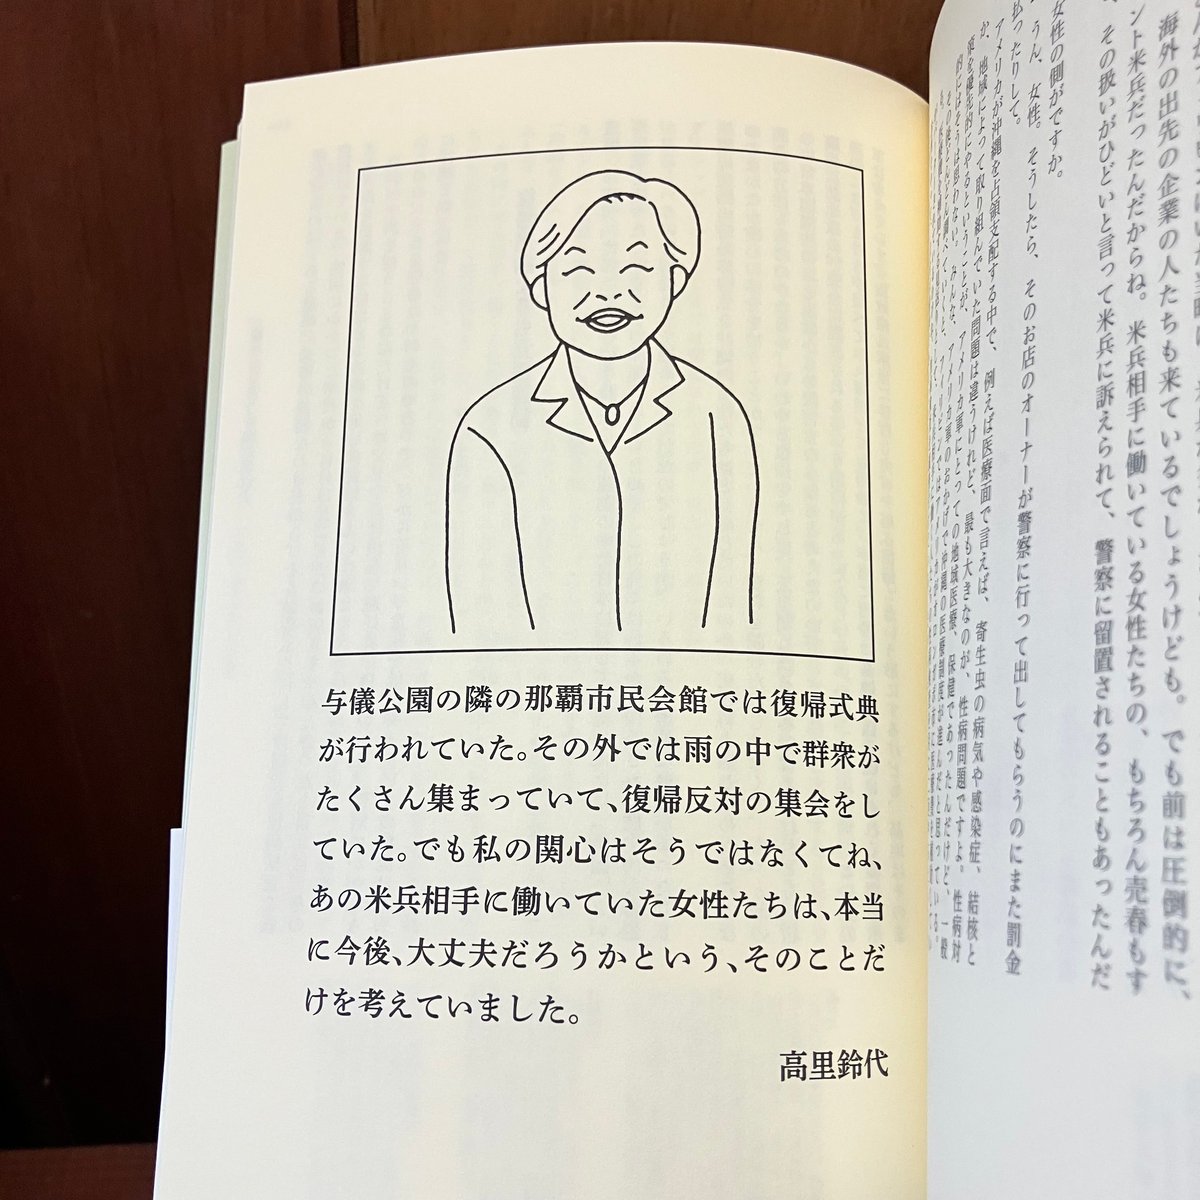 海外の出先の企業の人たちも来ているでしょうけども。でも前は圧倒的に、
ント米兵だったんだからね。米兵相手に働いている女性たちの、もちろん売春もす
、その扱いがひどいと言って米兵に訴えられて、警察に留置されることもあったんだ
女性の側がですか。
うん、女性。そうしたら、そのお店のオーナーが警察に行って出してもらうのにまた罰金
払ったりして。
アメリカが沖縄を占領支配する中で、例えば医療面で言えば、寄生虫の病気や感染症、結核と
か、地域によって取り組んでいた問題は違うけれど、最も大きなのが、性病問題ですよ。性病対
策を優先的にやるということが、アメリカ軍にとっての地域医療、保健であったんだけど、一般
的にはそうは思わない。みんな、アメリカ軍のおかげで沖縄の医療制度が進んだと思っている。
与儀公園の隣の那覇市民会館では復帰式典
が行われていた。その外では雨の中で群衆が
たくさん集まっていて、復帰反対の集会をし
ていた。でも私の関心はそうではなくてね、
あの米兵相手に働いていた女性たちは、本当
に今後、大丈夫だろうかという、そのことだ
けを考えていました。
高里鈴代